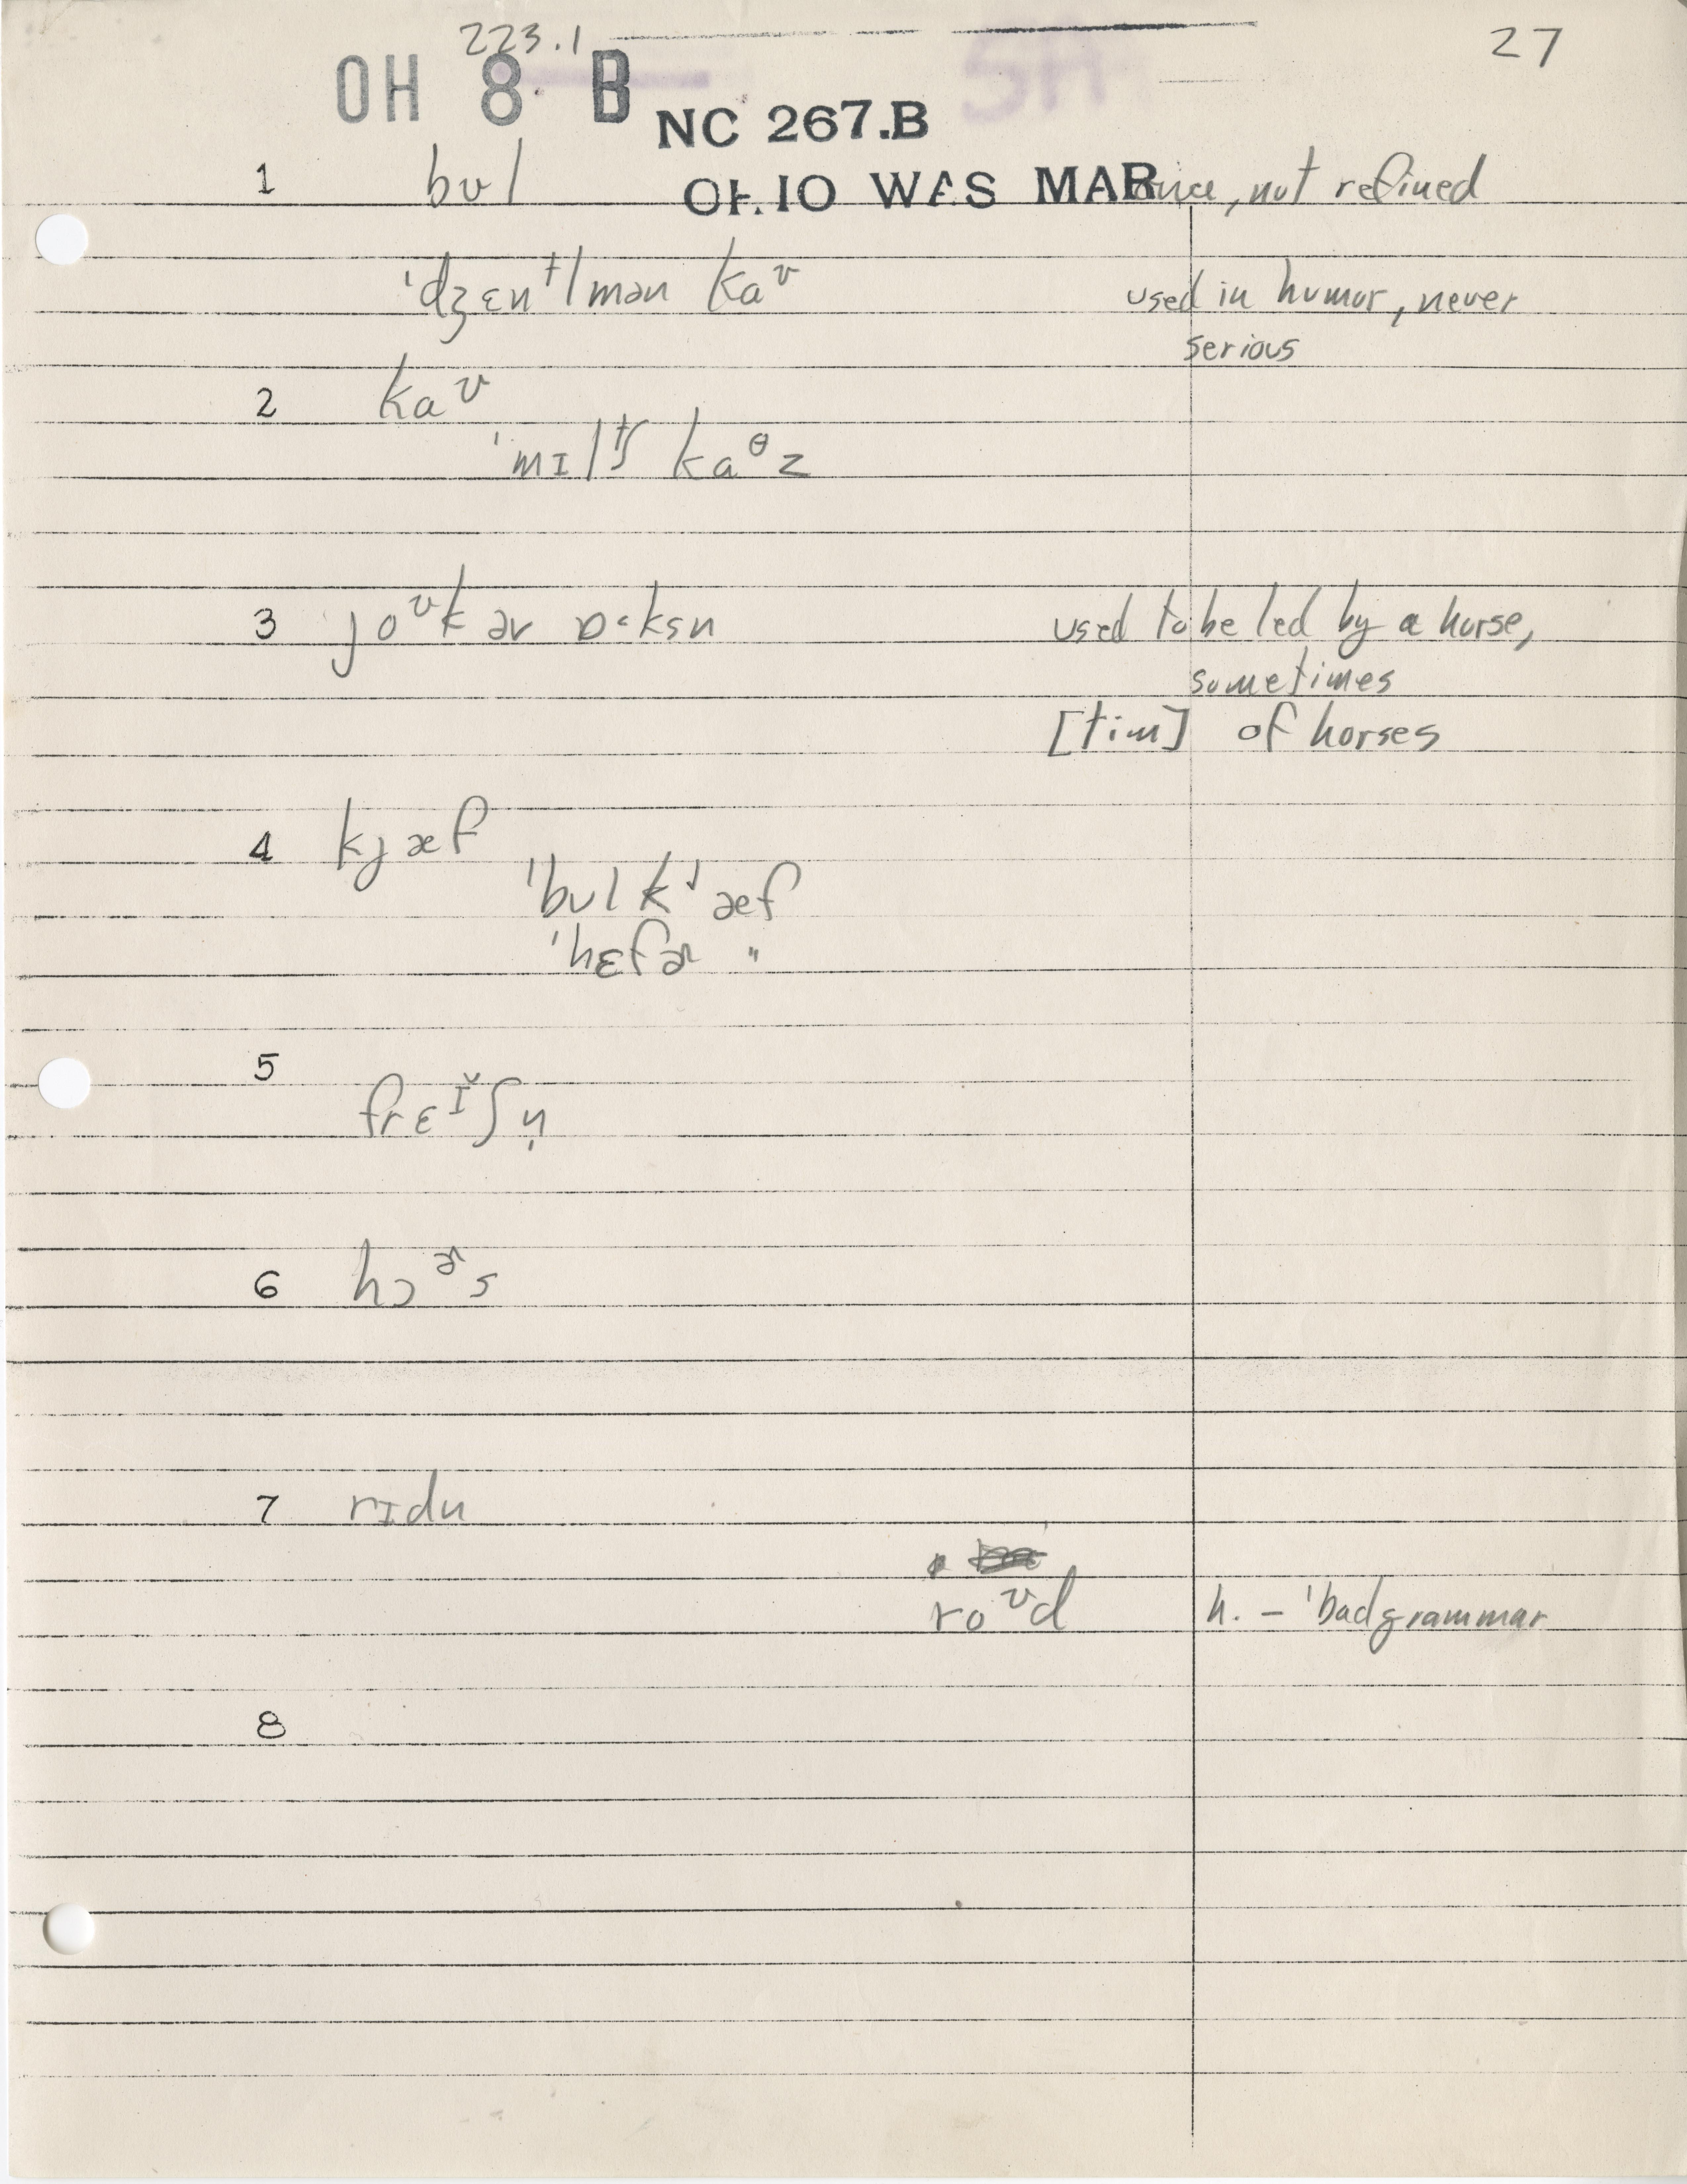 223.1
27
OH 8 B
SM
NC 267.B
OHIO WAS MAR
1 bʊl once, not refined
ˈdʒɛnᵗlmən kaᶷ used in humor, never
serious
2 kaᶷ
ˈmɪlᵗʃ kaᶿz
3 joᶷk ər ɒ˂ksn used to be led by a horse,
sometimes
[tim] of horses
4 kjæf
ˈbʊl kʲæf
ˈhɛfɚ "
5
frɛᶦ̆ʃn̩
6 hɔᵊʳs
7 rɪdn
roᶷd h. – 'bad grammar
8